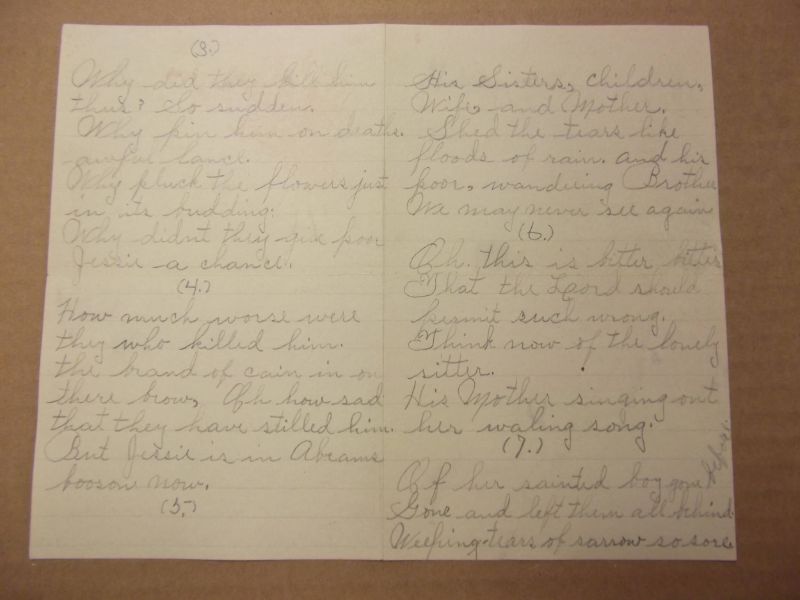 (3.)
Why did they kill him
thus? So sudden.
Why pin him on deaths.
awful lance.
Why pluck the flowers just
in its budding.
Why didnt they give poor
Jessie a chance.
(4.)
How much worse were
they who killed him.
the brand of cain in on
there brow, Oh how sad
that they have stilled him.
But Jessie is in Abrams
booson now.
(5.)
His Sisters, children,
Wife, and Mother.
Shed the tears like
floods of rain. and his
poor, wandering Brother
We may never see again
(6.)
Oh. this is bitter, bitter
That the Loord should
permit such wrong.
Think now of the lonely
sitter.
His Mother singing out
her waling song.
(7.)
Of her sainted boy gone
Gone and left them all behind.
Weeping tears of sarrow so sore